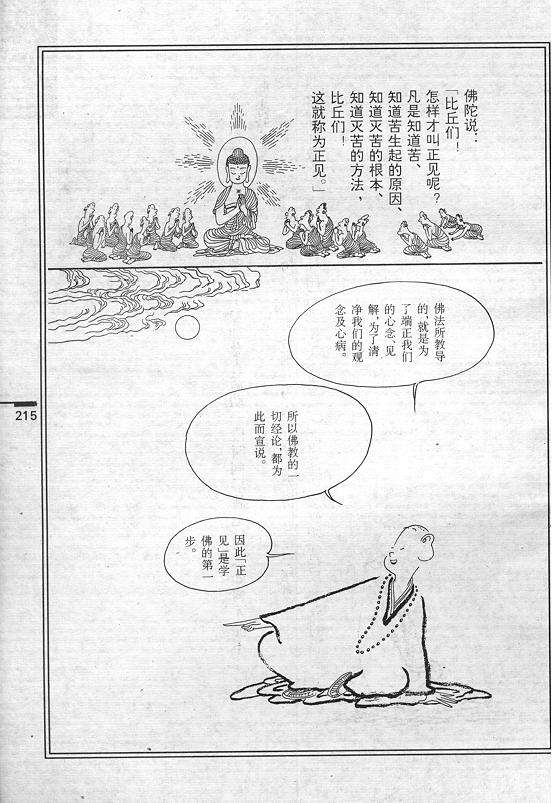 佛陀说：
「比丘们！
怎样才叫正见呢？
凡是知道苦、
知道苦生起的原因、
知道灭苦的根本、
知道灭苦的方法，
比丘们！
这就称为正见。」
佛法所教导
的，就是为
了端正我们
的心念、见
解，为了清
净我们的观
念及心病。
所以佛教的一
切经论，都为
此而宣说。
因此「正
见」是学
佛的第一
步。
215